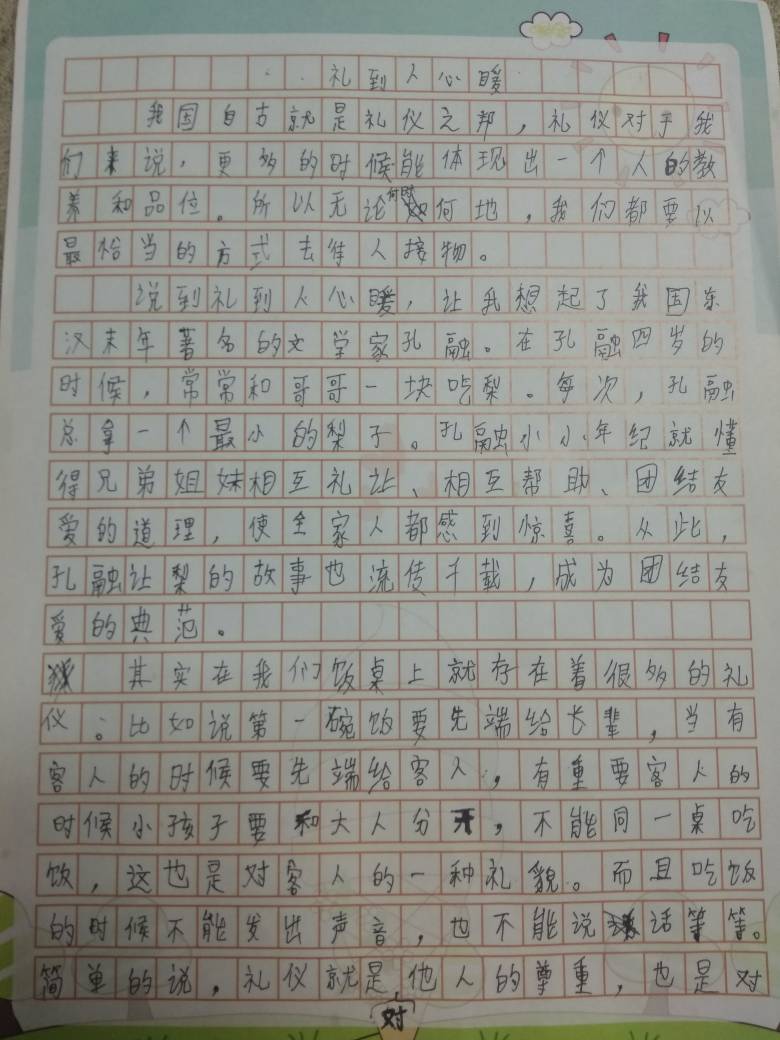 礼到人心暖
我国自古就是礼仪之邦，礼仪对于我
们来说，更多的时候能体现出一个人的教
养和品位。所以无论何时何地，我们都要以
最恰当的方式去待人接物。
说到礼到人心暖，让我想起了我国东
汉末年著名的文学家孔融。在孔融四岁的
时候，常常和哥哥一块吃梨。每次，孔融
总拿一个最小的梨子。孔融小小年纪就懂
得兄弟姐妹相互礼让、相互帮助、团结友
爱的道理，使全家人都感到惊喜。从此，
孔融让梨的故事也流传千载，成为团结友
爱的典范。
其实在我们饭桌上就存在着很多的礼
仪。比如说第一碗饭要先端给长辈，当有
客人的时候要先端给客人，有重要客人的
时候小孩子要和大人分开，不能同一桌吃
饭，这也是对客人的一种礼貌。而且吃饭
的时候不能发出声音，也不能说话等等。
简单的说，礼仪就是对他人的尊重，也是对